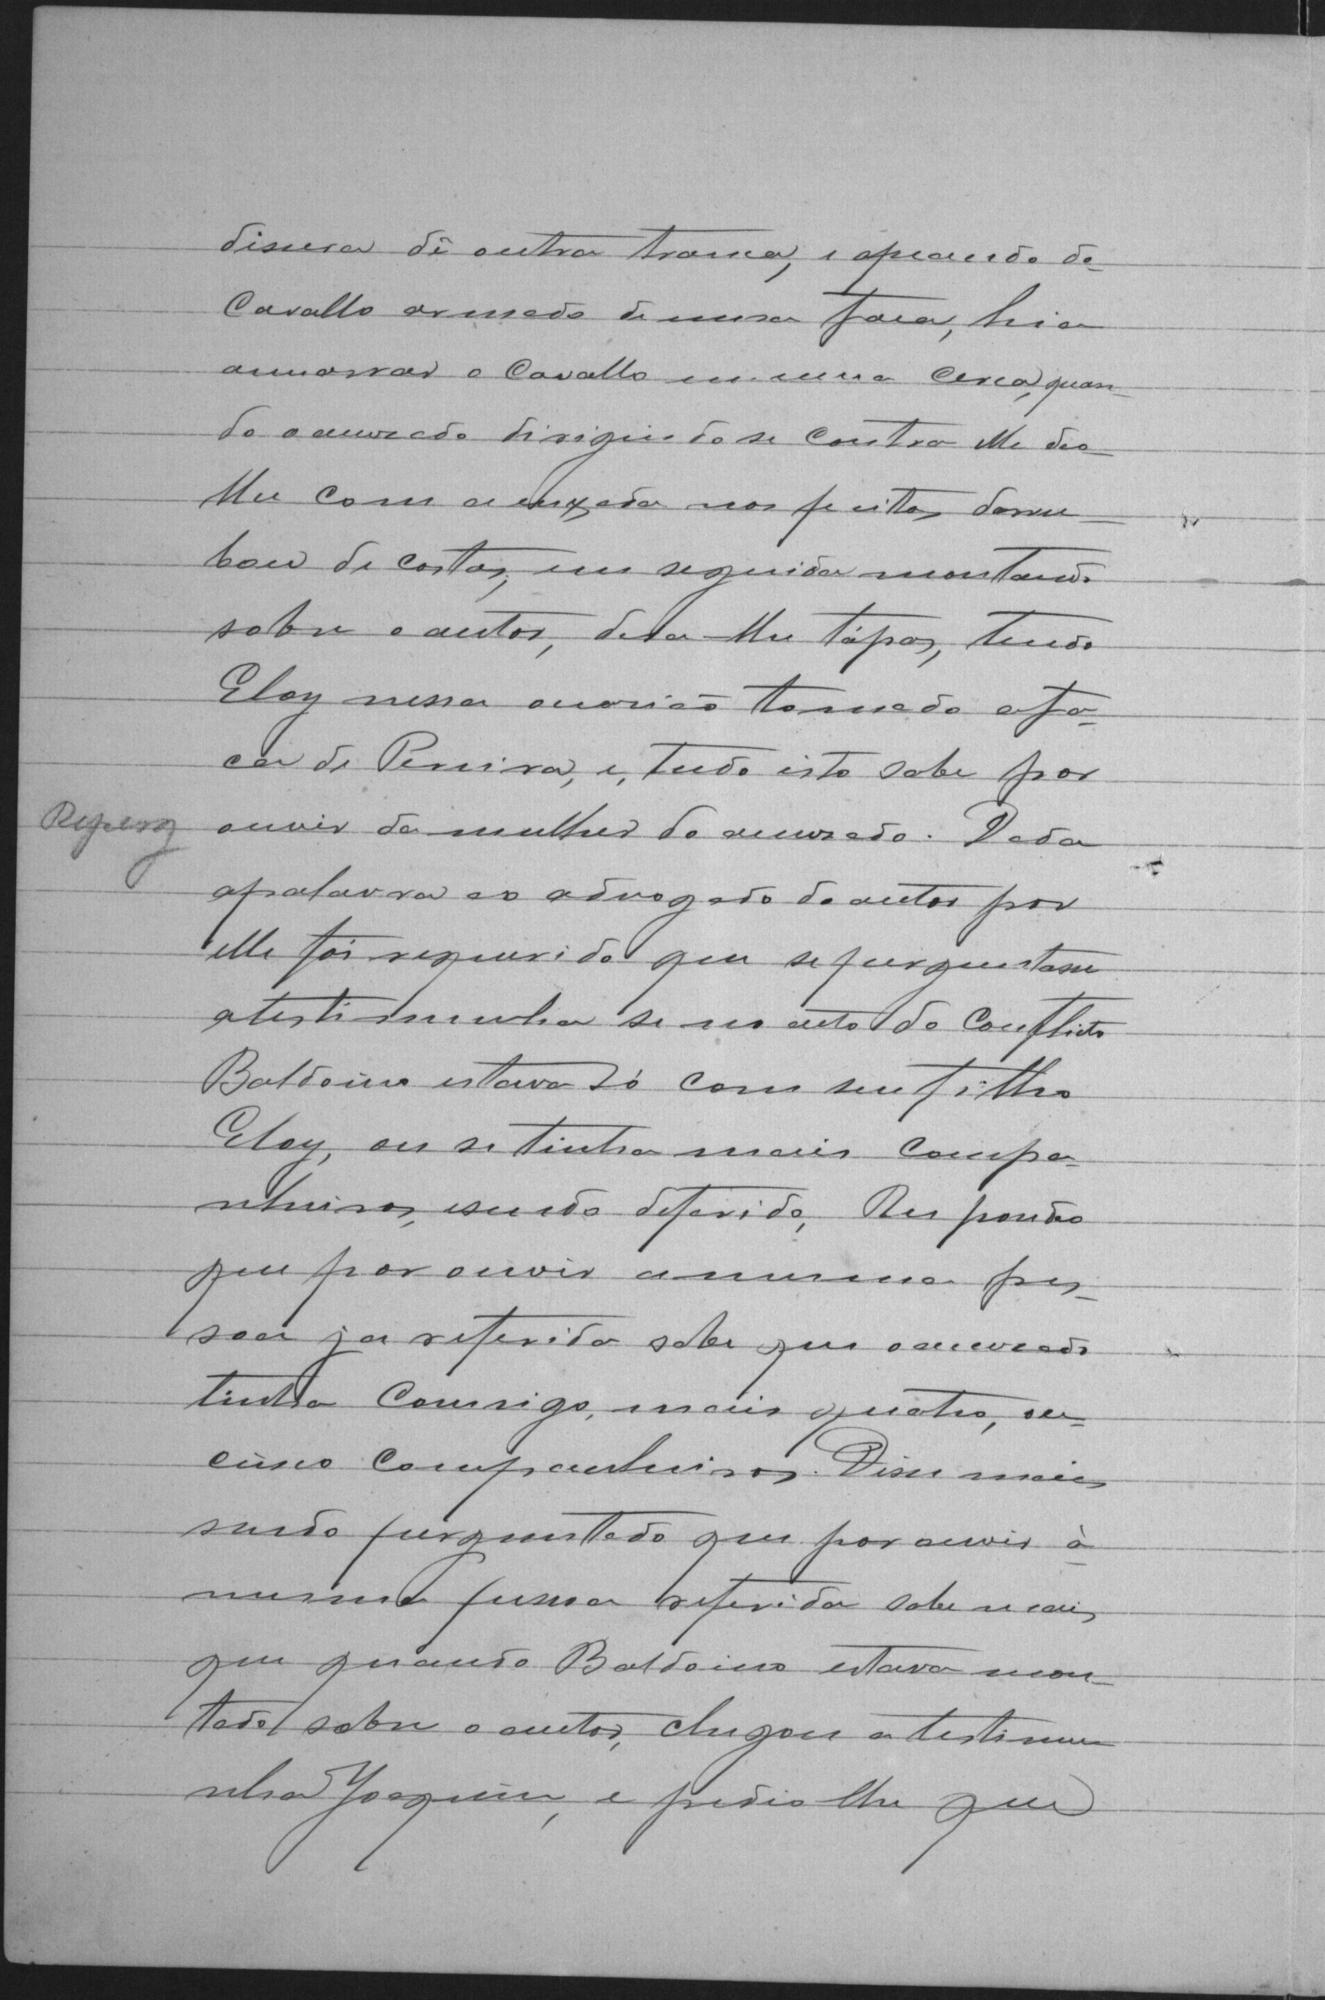 dissera dê outra tranca, e apeando do
Cavallo armado de uma faca, hia
amarrar o Cavallo em uma cerca, quan-
do o accusado dirigindo se contra elle deo
lhe com a enxada nos peitos derru-
bou de costas, em seguida montando
sobre o autor, dera lhe tápas, tendo
Eloy nessa occasião tomado a fa-
ca de Pereira, e, tudo isto sabe por
Reperg ouvir da mulher do accusado. Dada
a palavra ao advogado do autor por
elle foi requerido que se perguntasse
a testimunha se no acto do Conflicto
Baldoino estava só com seu filho
Eloy, ou se tinha mais compa-
nheiros, e sendo deferido, Respondeo
que por ouvir a mesma pes-
soa ja referida sabe que o accusado
tinha Comsigo, mais quatro, ou
cinco companheiros. Disse mais
sendo perguntado que por ouvir à
mesma pessoa referida sabe mais
que quando Baldoino estava mon-
tado sobre o autor, chegou a testimu-
nha Joaquim, e pedio lhe que